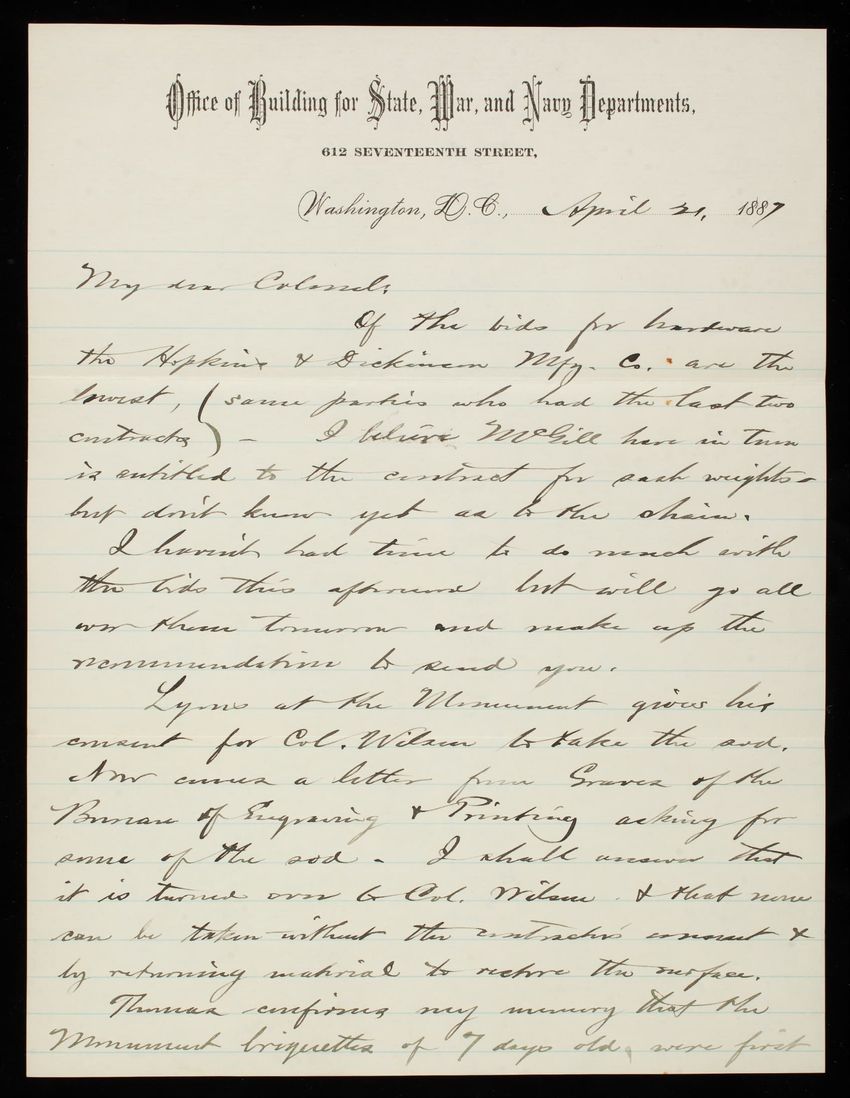 Office of Building for State, War, and Navy Departments,
612 SEVENTEENTH STREET,
Washington, D.C., April 21, 1887
My dear Colonel:
Of the bids for hardware
the Hopkins & Dickinson Mfg. Co. are the
lowest, (same parties who had the last two
contracts) – I believe McGill here in turn
is entitled to the contract for sash weights –
but don't know yet as to the chain.
I haven't had time to do much with
the bids this afternoon but will go all
over them tomorrow and make up the
recommendation to send you.
Lyons at the Monument gives his
consent for Col. Wilson to take the sod.
Now comes a letter from Graves of the
Bureau of Engraving & Printing asking for
some of the sod – I shall answer that
it is turned over to Col. Wilson & that none
can be taken without the contractor's consent &
by returning material to restore the surface.
Thomas confirms my memory that the
Monument briquettes of 7 days old, were first